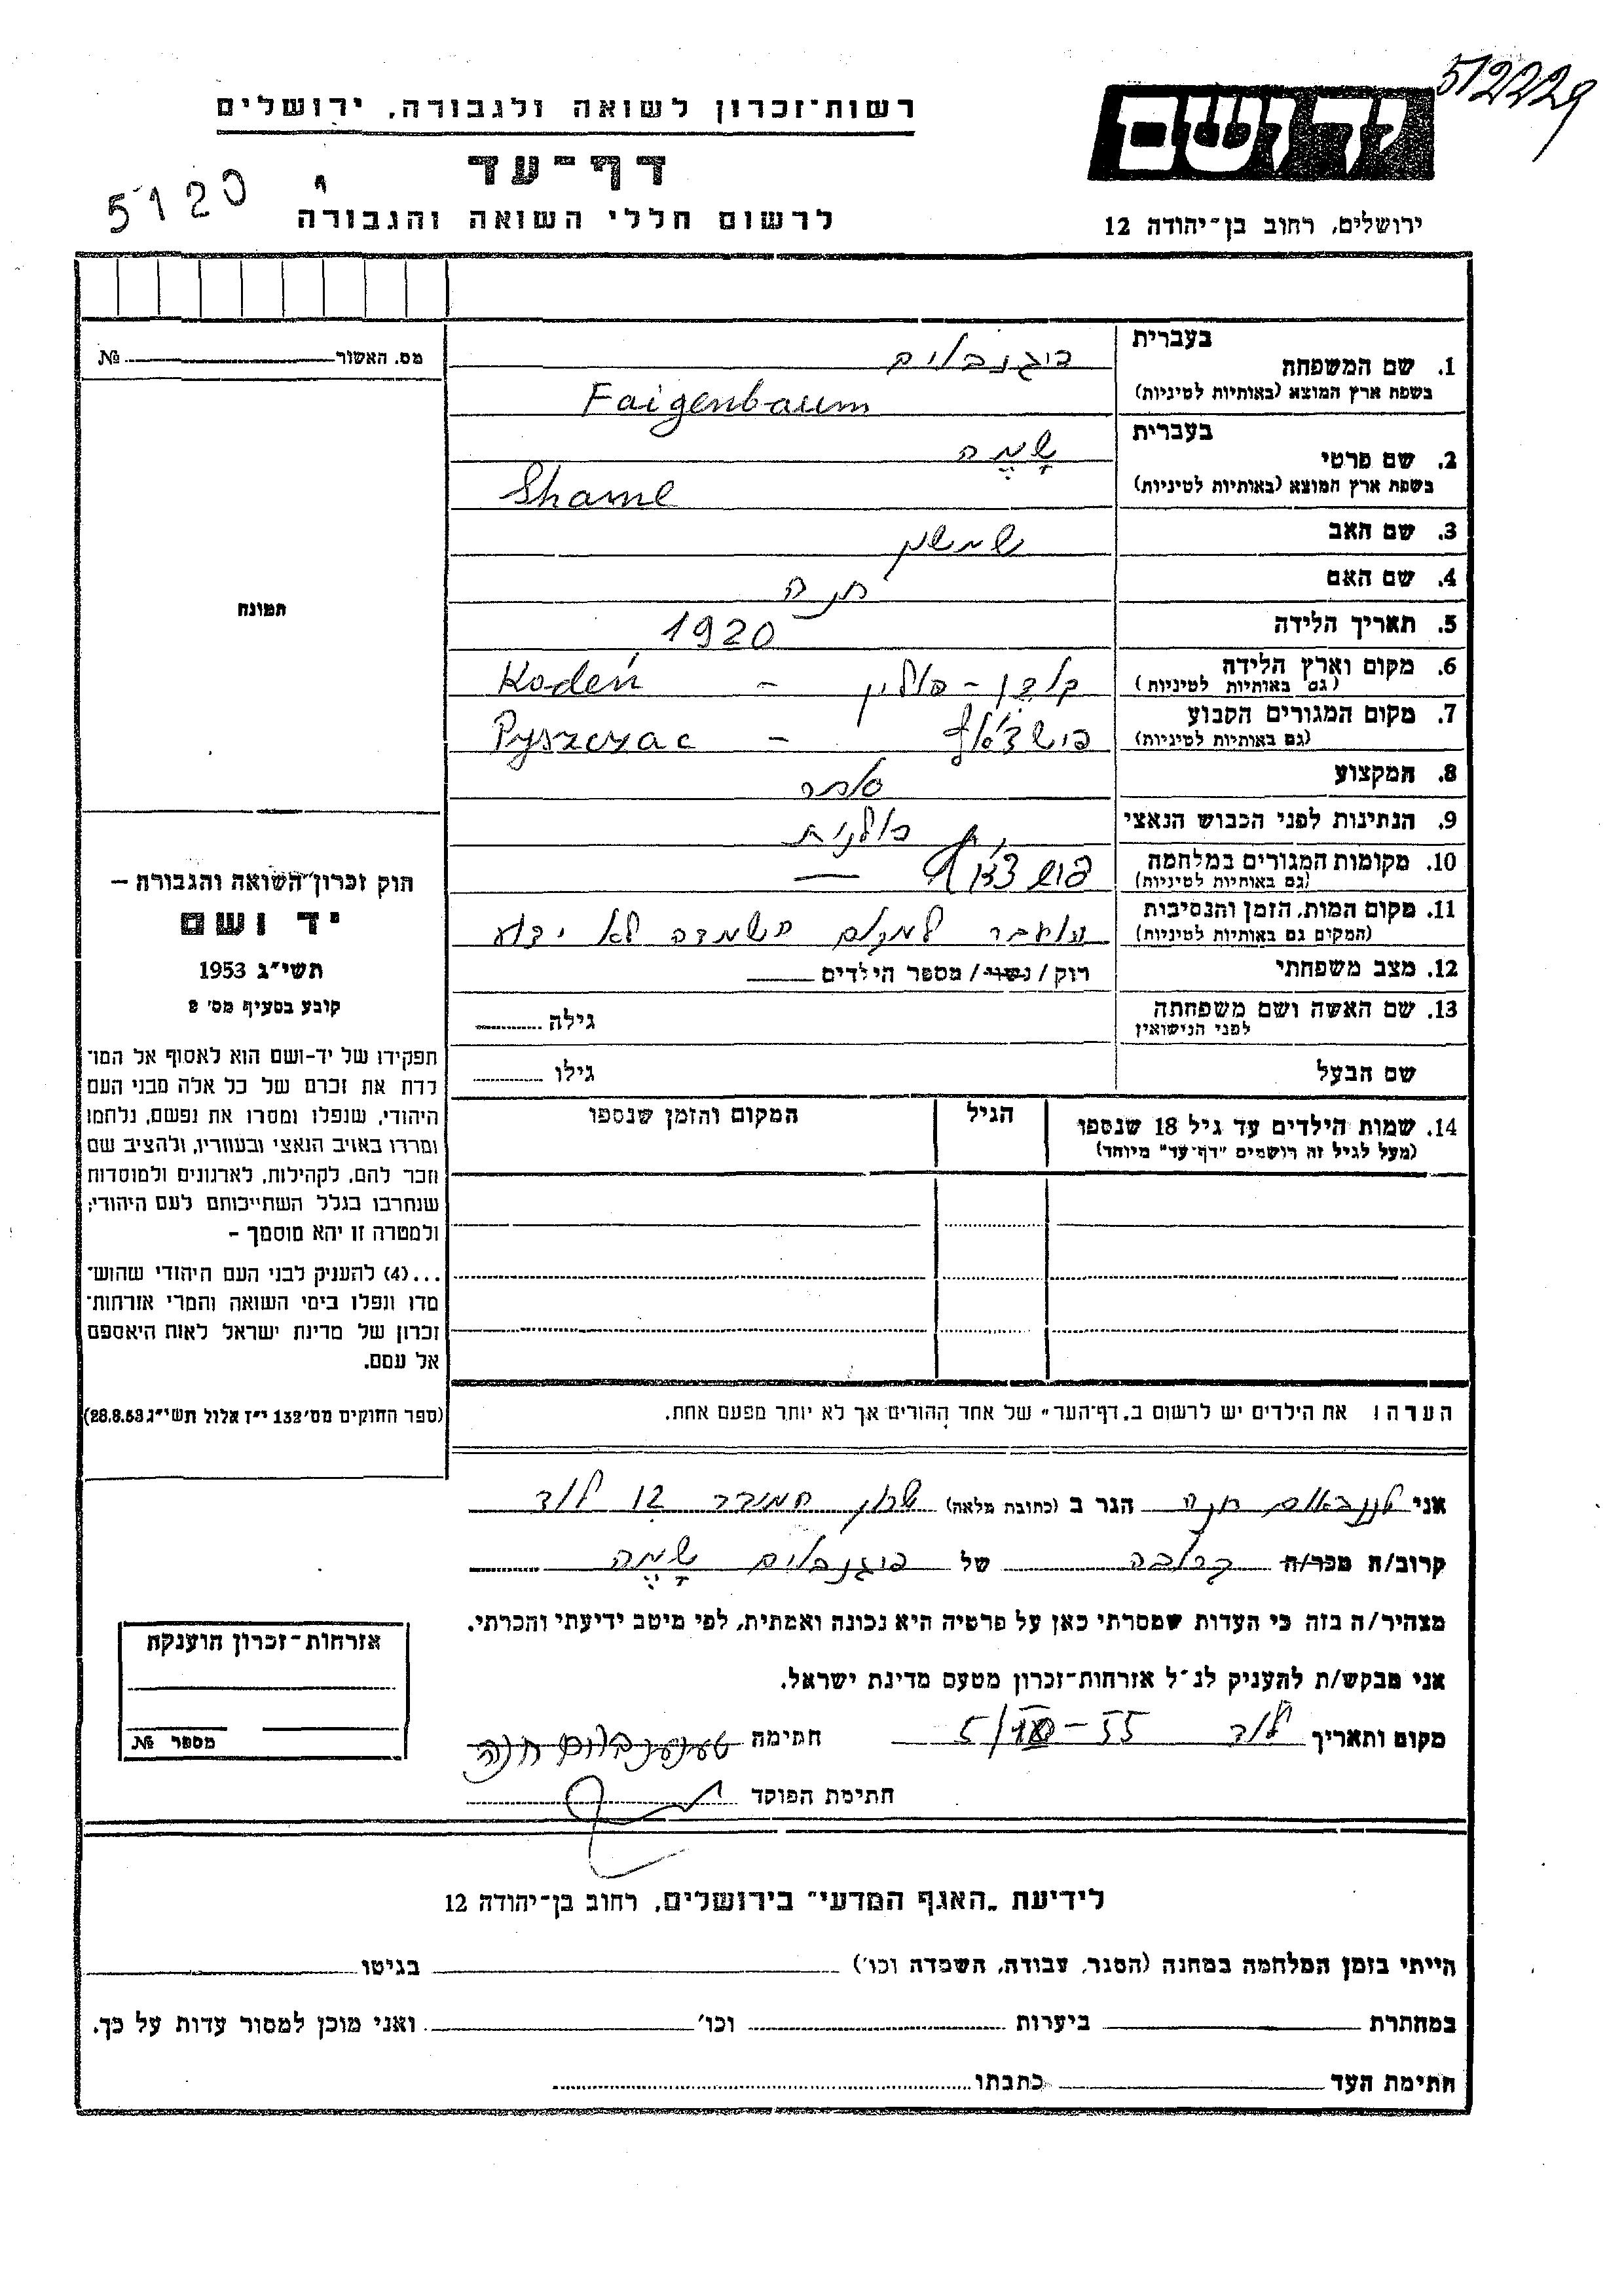 512229
רשות־זכרון לשואה ולגבורה, ירושלים
יד ושם
דף־עד
5120
לרשום חללי השואה והגבורה
ירושלים, רחוב בן־יהודה 12
מס. האשור № 
1. שם המשפחה
בעברית פיגנבוים
בשפת ארץ המוצא (באותיות לטיניות) Faigenbaum
2. שם פרטי
בעברית שָמֶה
בשפת ארץ המוצא (באותיות לטיניות) Shame
3. שם האב שמשון
4. שם האם חנה
5. תאריך הלידה 1920
6. מקום וארץ הלידה (גם באותיות לטיניות) קודן - פולין - Kodeń
7. מקום המגורים הקבוע (גם באותיות לטיניות) פישצ'אץ - Pyszczac
8. המקצוע סוחר
9. הנתינות לפני הכבוש הנאצי פולנית
10. מקומות המגורים במלחמה (גם באותיות לטיניות) פישצ'אץ —
11. מקום המות, הזמן והנסיבות (המקום גם באותיות לטיניות) הועבר למקום השמדה לא ידוע
12. מצב משפחתי רווק / נשוי / מספר הילדים
13. שם האשה ושם משפחתה לפני הנישואין גילה
שם הבעל גילו
14. שמות הילדים עד גיל 18 שנספו
(מעל לגיל זה רושמים "דף־עד" מיוחד)
הגיל
המקום והזמן שנספו
הערה: את הילדים יש לרשום ב„דף־העד" של אחד ההורים אך לא יותר מפעם אחת.
תמונה
חוק זכרון השואה והגבורה —
יד ושם
תשי"ג 1953
קובע בסעיף מס' 2
תפקידו של יד־ושם הוא לאסוף אל המו־
לדת את זכרם של כל אלה מבני העם
היהודי, שנפלו ומסרו את נפשם, נלחמו
ומרדו באויב הנאצי ובעוזריו, ולהציב שם
וזכר להם, לקהילות, לארגונים ולמוסדות
שנחרבו בגלל השתייכותם לעם היהודי;
ולמטרה זו יהא מוסמך –
...(4) להעניק לבני העם היהודי שהוש־
מדו ונפלו בימי השואה והמרי אזרחות־
זכרון של מדינת ישראל לאות היאספם
אל עמם.
(ספר החוקים מס' 132 י"ז אלול תשי"ג 28.8.53)
אני חנה הגר ב (כתובת מלאה) 12 לוד
קרוב/ה מכר/ה קרובה של פיגנבוים שָמֶה
מצהיר/ה בזה כי העדות שמסרתי כאן על פרטיה היא נכונה ואמתית, לפי מיטב ידיעתי והכרתי.
אני מבקש/ת להעניק לנ"ל אזרחות־זכרון מטעם מדינת ישראל.
מקום ותאריך לוד 55 חתימה טענענבוים חנה
חתימת הפוקד
אזרחות־זכרון הוענקה
מספר №
לידיעת „האגף המדעי" בירושלים, רחוב בן־יהודה 12
הייתי בזמן המלחמה במחנה (הסגר, עבודה, השמדה וכו') בגיטו
במחתרת ביערות וכו' ואני מוכן למסור עדות על כך.
חתימת העד כתבתו